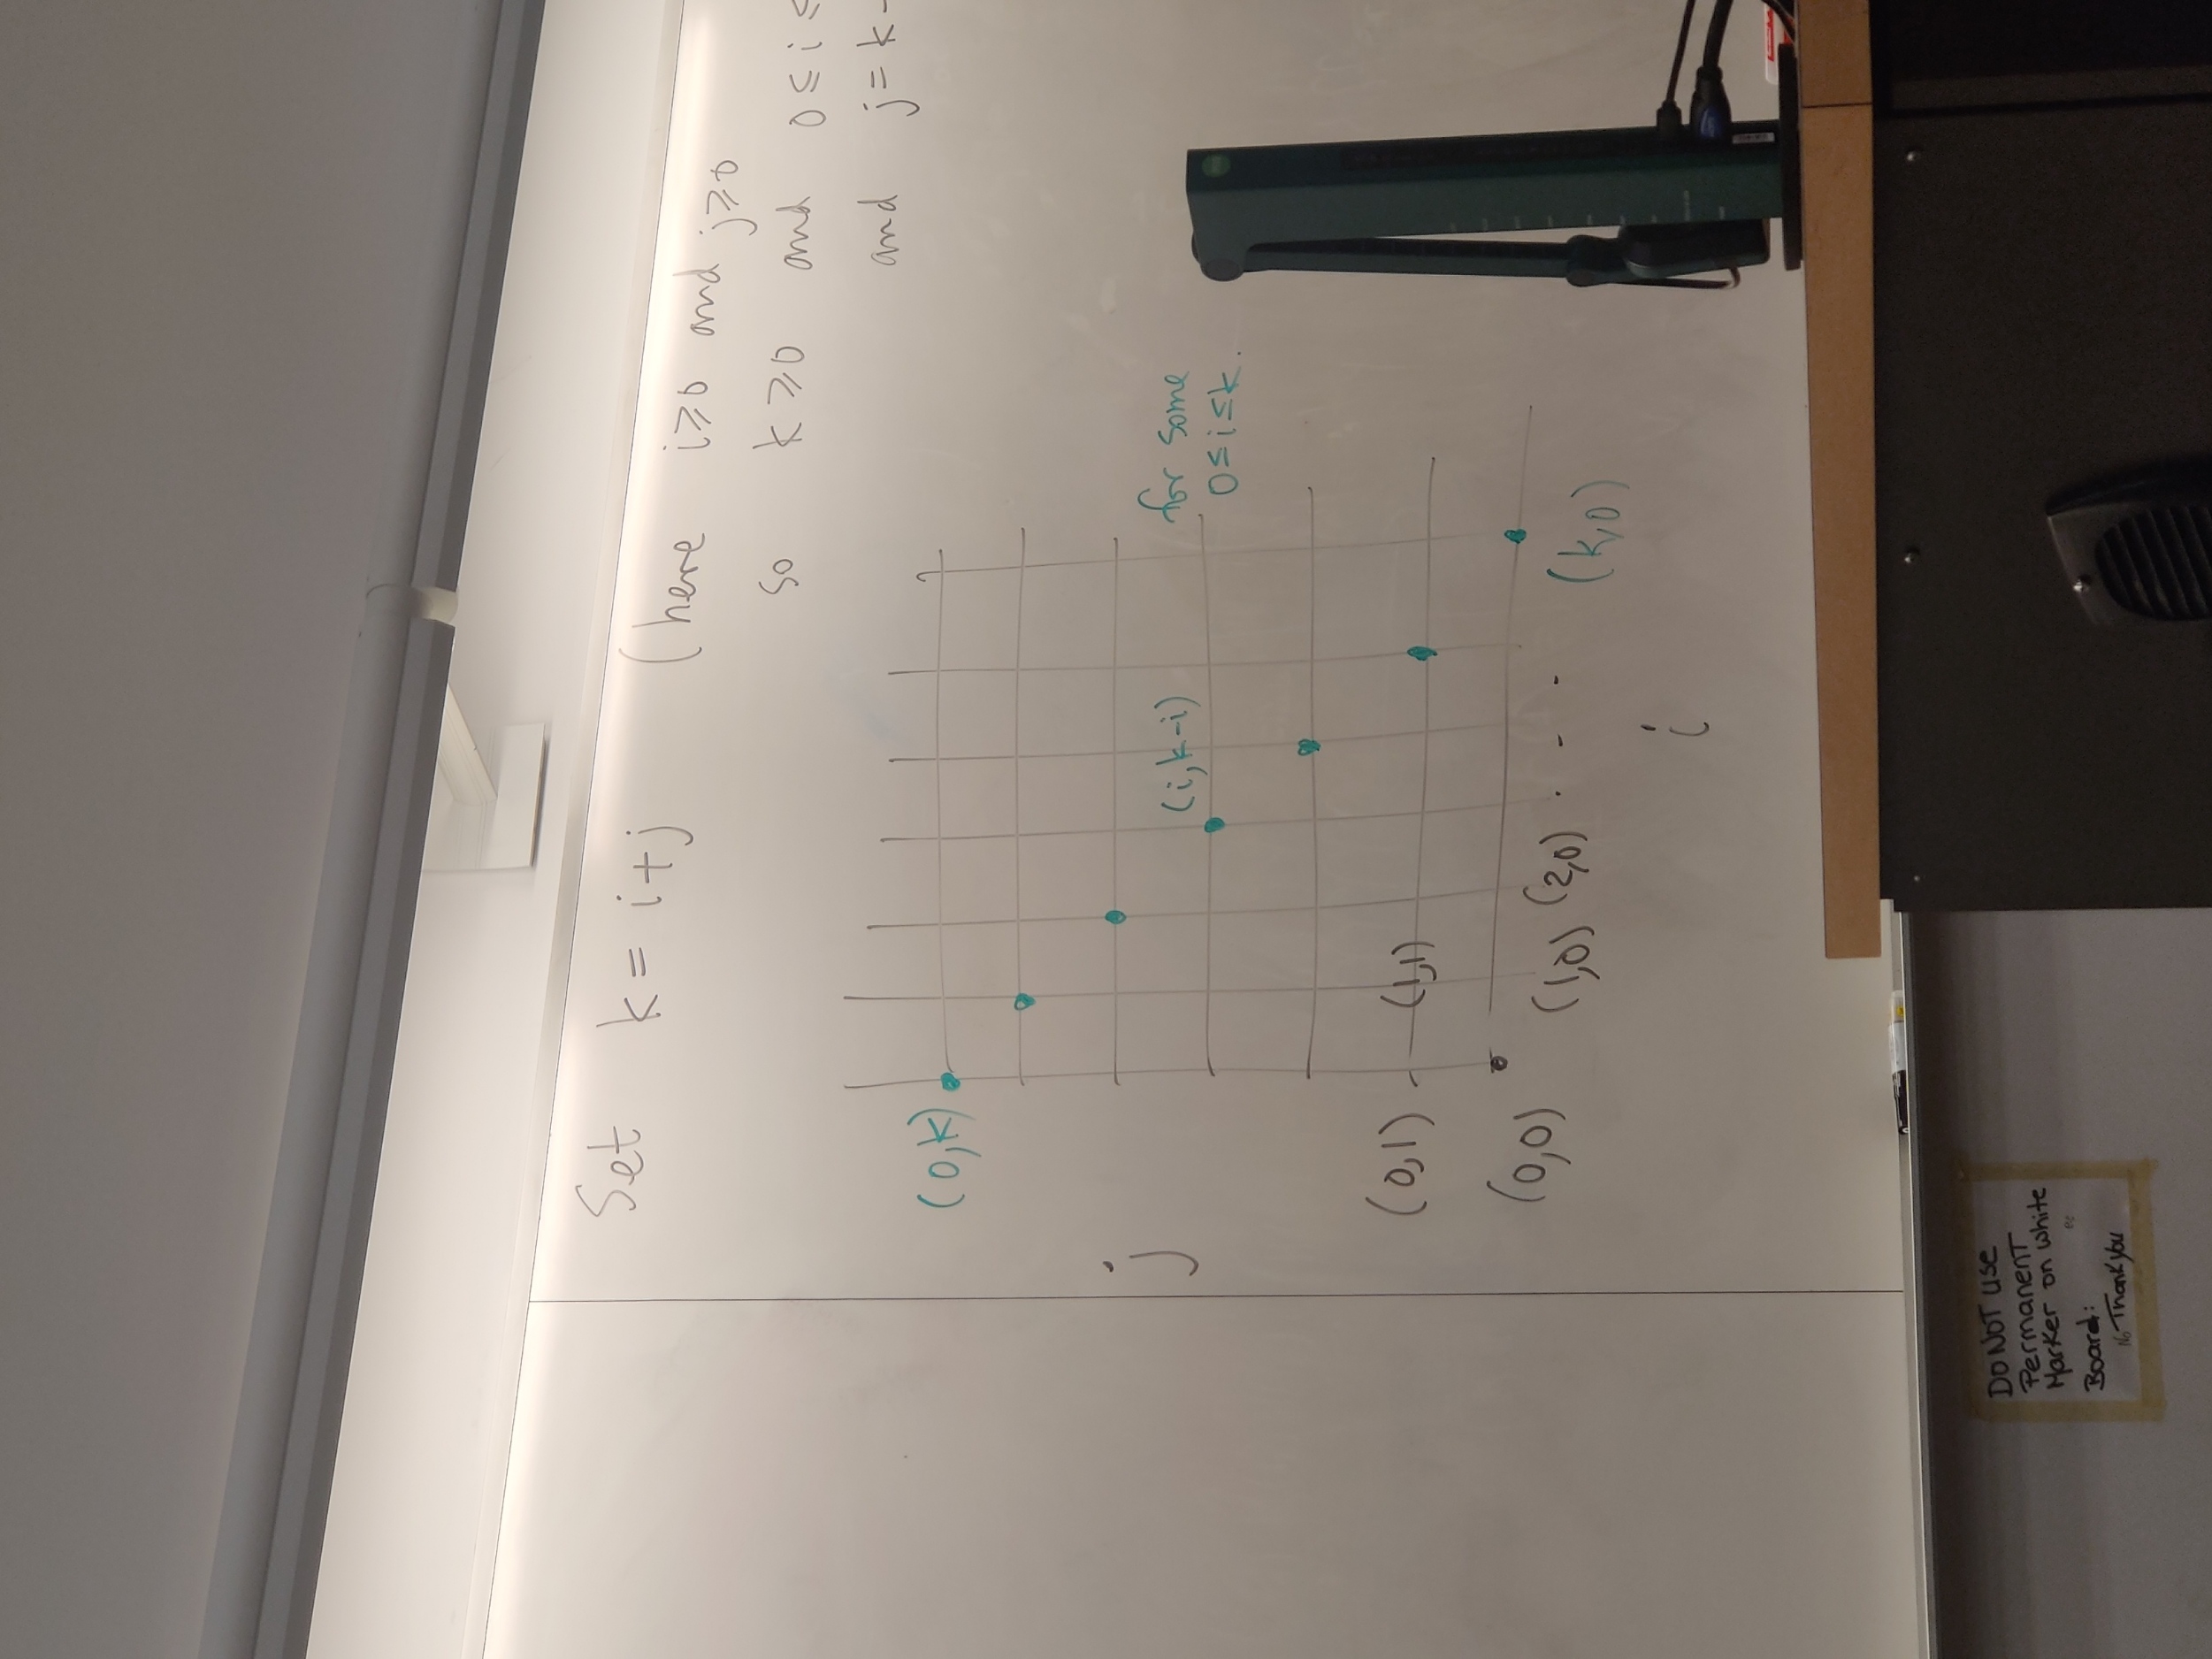 Set k = i+j (here i⩾0 and j⩾0
so k⩾0 and 0≤i≤
and j=k-
(0,k)
j
(i,k-i) for some
0≤i≤k.
(0,1) (1,1)
(0,0)
(1,0) (2,0) . - - (k,0)
i
DO NOT use
Permanent
Marker on white
Board:
No Thank you